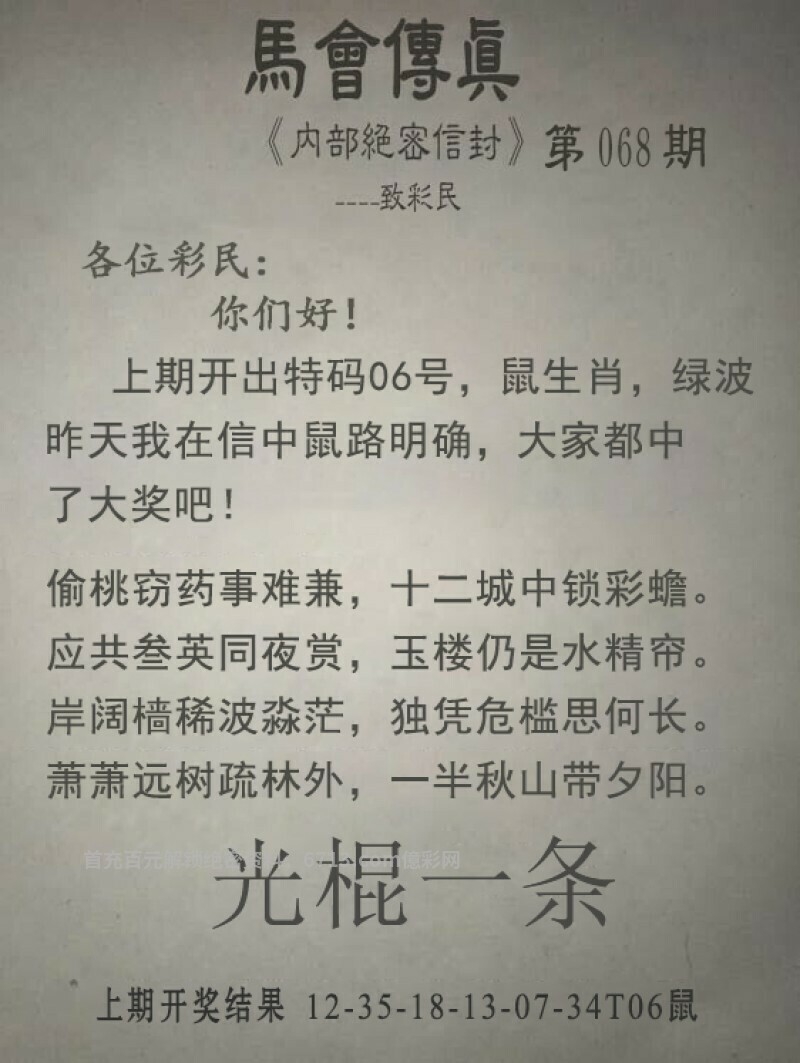 馬會傳眞
《内部絕密信封》第068期
----致彩民
各位彩民：
你们好！
上期开出特码06号，鼠生肖，绿波
昨天我在信中鼠路明确，大家都中
了大奖吧！
偷桃窃药事难兼，十二城中锁彩蟾。
应共叁英同夜赏，玉楼仍是水精帘。
岸阔樯稀波淼茫，独凭危槛思何长。
萧萧远树疏林外，一半秋山带夕阳。
光棍一条
上期开奖结果 12-35-18-13-07-34T06鼠